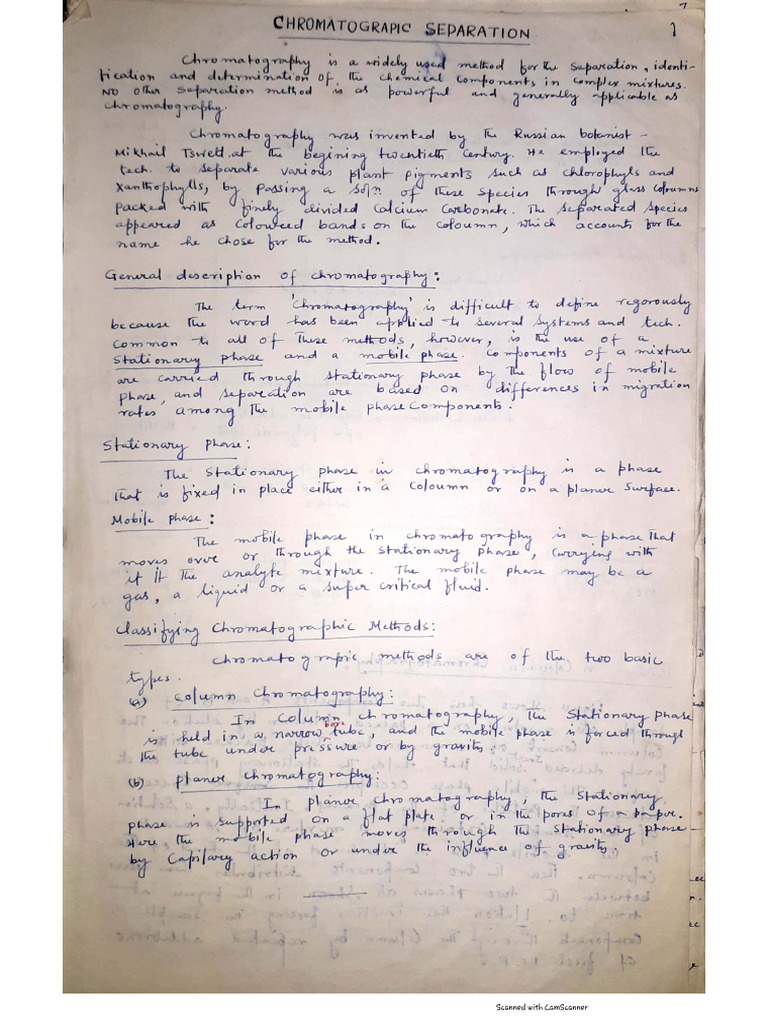 CHROMATOGRAPIC SEPARATION
1
Chromatography is a widely used method for the separation, identi-
fication and determination of, the chemical components in complex mixtures.
NO other separation method is as powerful and generally applicable as
chromatography.
Chromatography was invented by the Russian botanist -
Mikhail Tswett.at the begining twentieth century. He employed the
tech. to separate various plant pigments such as chlorophyls and
xanthophylls, by passing a soln. of these species through glass coloumns
packed with finely divided Calcium Carbonate. The separated species
appeared as coloured bands on the coloumn, which accounts for the
name he chose for the method.
General description of chromatography:
The term 'Chromatography' is difficult to define regorously
because the word has been applied to several systems and tech.
Common to all of these methods, however, is the use of a
stationary phase and a mobile phase. Components of a mixture
are carried through stationary phase by the flow of mobile
phase, and separation are based on differences in migration
rates among the mobile phase components.
Stationary phase:
The Stationary phase in chromatography is a phase
that is fixed in place either in a coloumn or on a planer surface.
Mobile phase:
The mobile phase in chromatography is a phase that
moves over or through the stationary phase, carrying with
it the analyte mixture. The mobile phase may be a
gas, a liquid or a super critical fluid.
Classifying Chromatographic Methods:
Chromatograpic methods are of the two basic
types.
(a) Column Chromatography:
In Column chromatography, the stationary phase
is held in a narrow bore tube, and the mobile phase is forced through
the tube under pressure or by gravity.
(b) Planer Chromatography:
In planer chromatography, the stationary
phase is supported on a flat plate or in the pores of a paper.
Here the mobile phase moves through the stationary phase -
by capilary action or under the influence of gravity.
Scanned with CamScanner